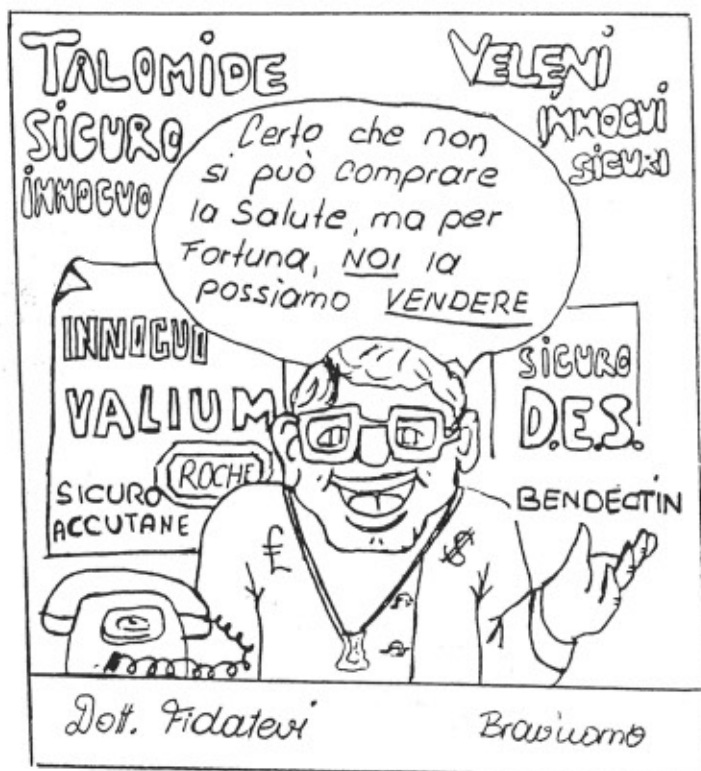 TALOMIDE
SICURO
INNOCUO
VELENI
INNOCUI
SICURI
Certo che non
si può comprare
la Salute, ma per
Fortuna, NOI la
possiamo VENDERE
INNOCUO
VALIUM
ROCHE
SICURO
ACCUTANE
SICURO
D.E.S.
BENDECTIN
£
$
Dott. Fidatevi
Bravuomo